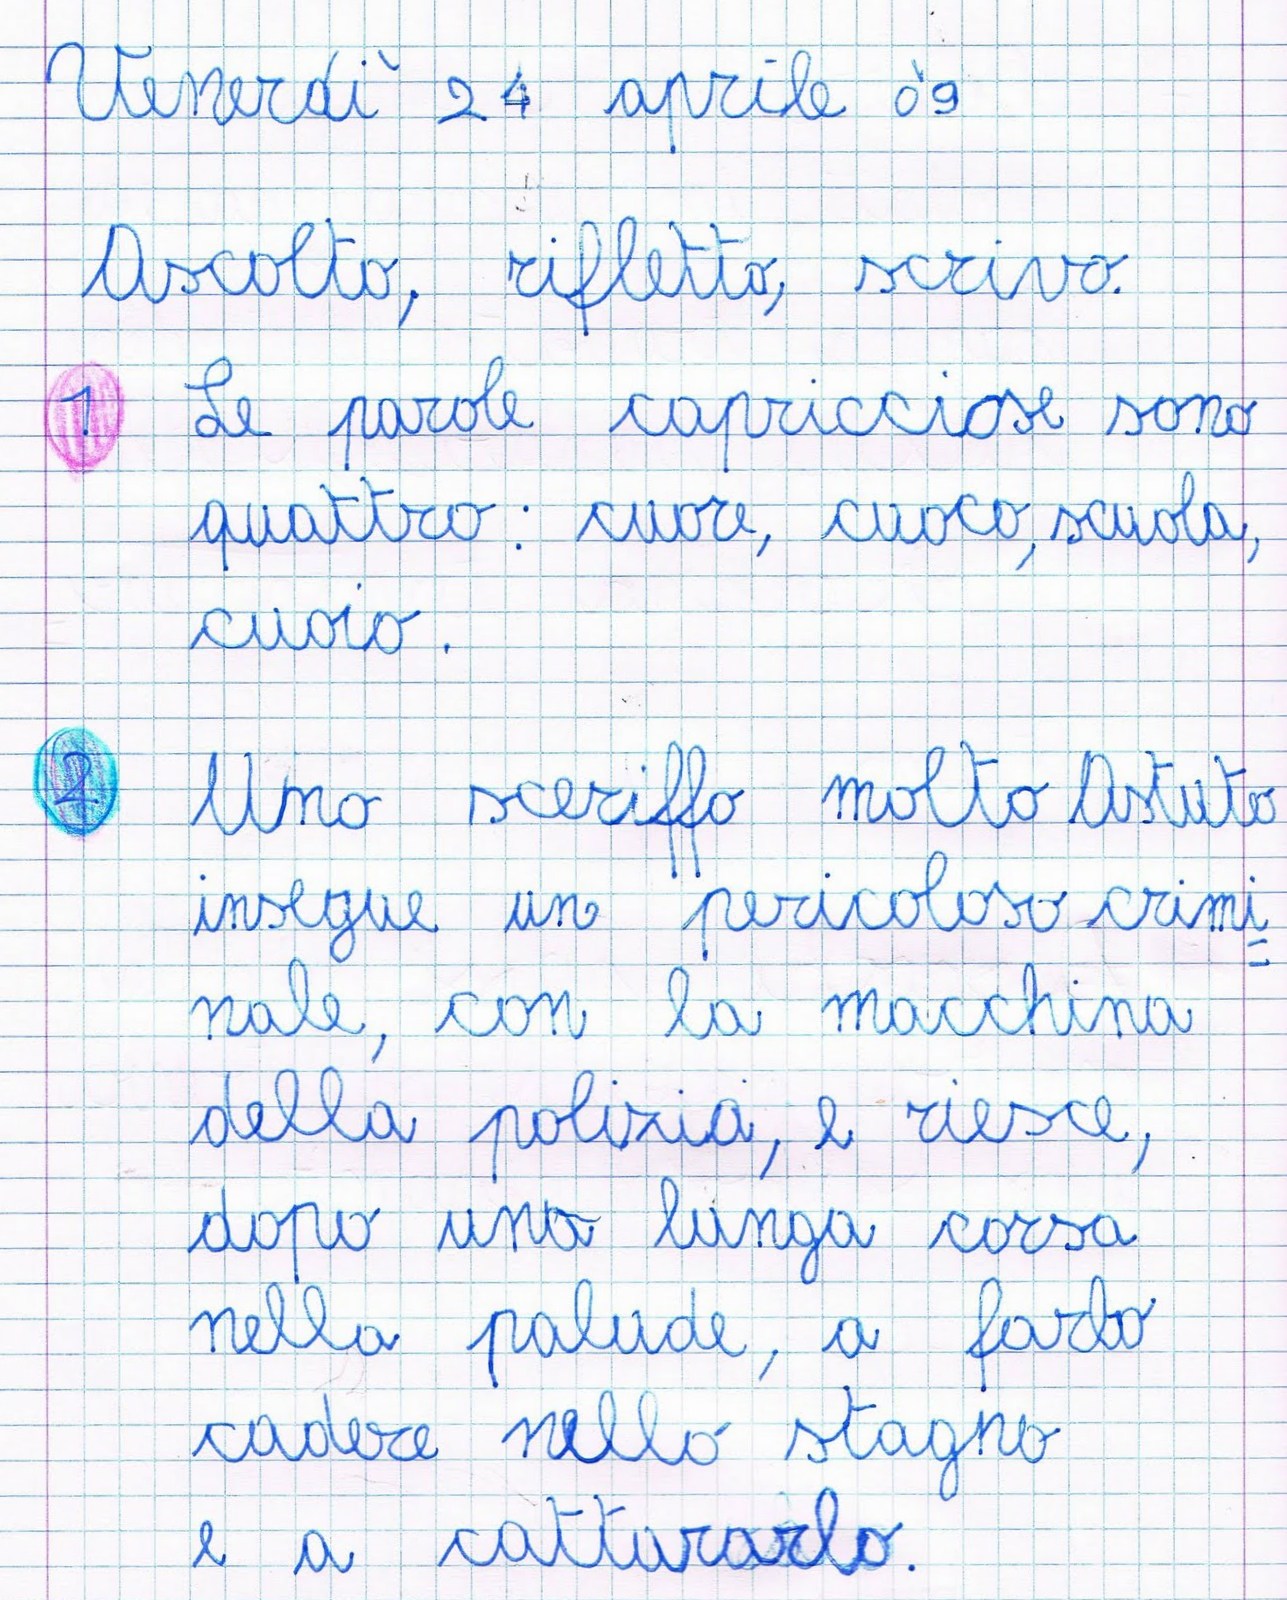 Venerdì 24 aprile 09
Ascolto, rifletto, scrivo.
1 Le parole capricciose sono
quattro: cuore, cuoco, scuola,
cuoio.
2 Uno sceriffo molto Astuto
insegue un pericoloso crimi=
nale, con la macchina
della polizia, e riesce,
dopo una lunga corsa
nella palude, a farlo
cadere nello stagno
e a catturarlo.